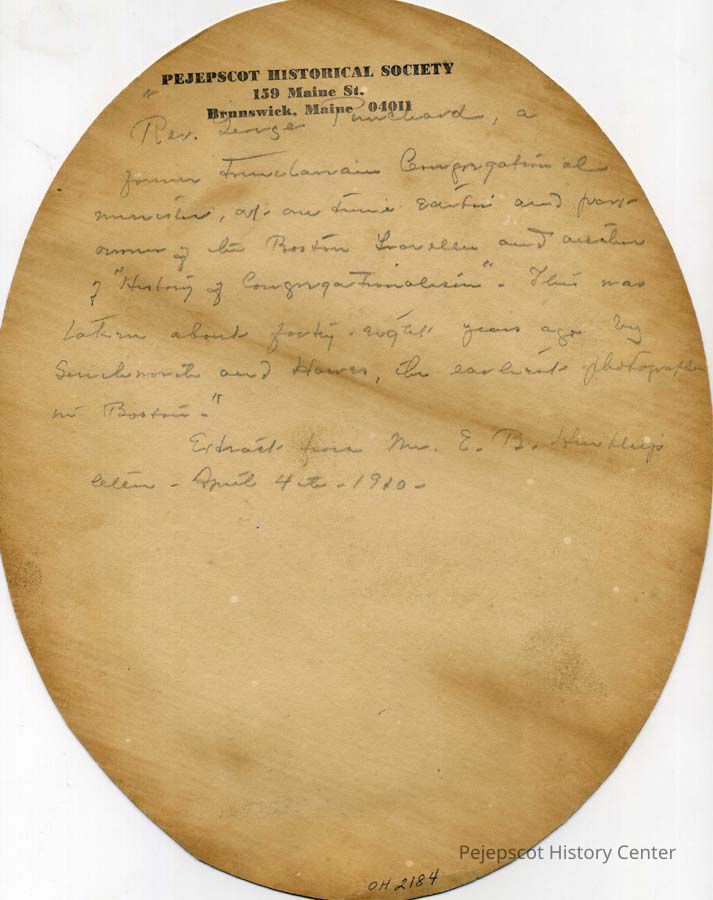 PEJEPSCOT HISTORICAL SOCIETY
159 Maine St.
Brunswick, Maine 04011
"Rev. George Punchard, a
former Trinitarian Congregational
minister, at one time Editor and part
owner of the Boston Traveller and author
of "History of Congregationalism". This was
taken about forty-eight years ago by
Southworth and Hawes, the earliest photographers
in Boston."
Extract from Mr. E. B.
letter - April 4th - 1910 -
OH 2184
Pejepscot History Center